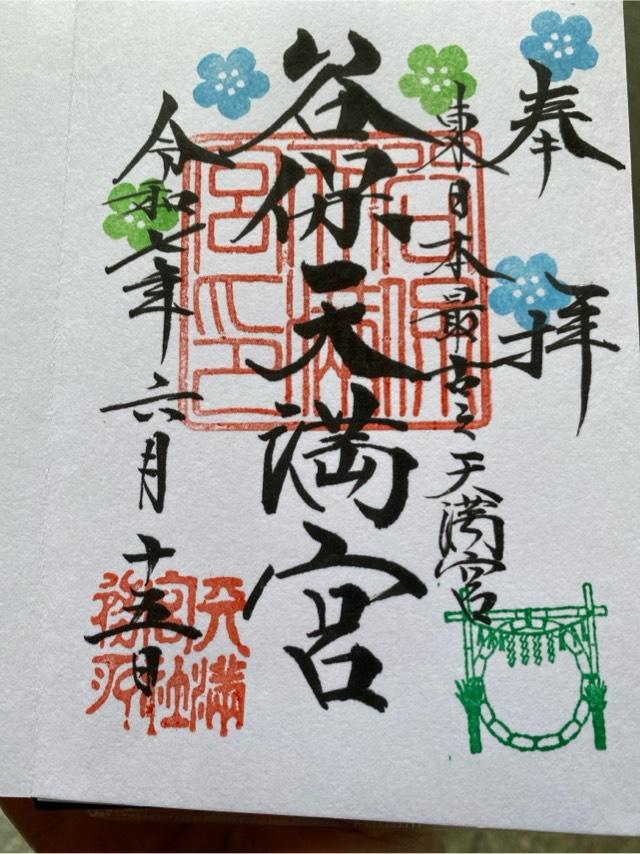 奉拝
東日本最古之天満宮
谷保天満宮
令和七年六月十五日
谷保天満宮印
天満宮社務所